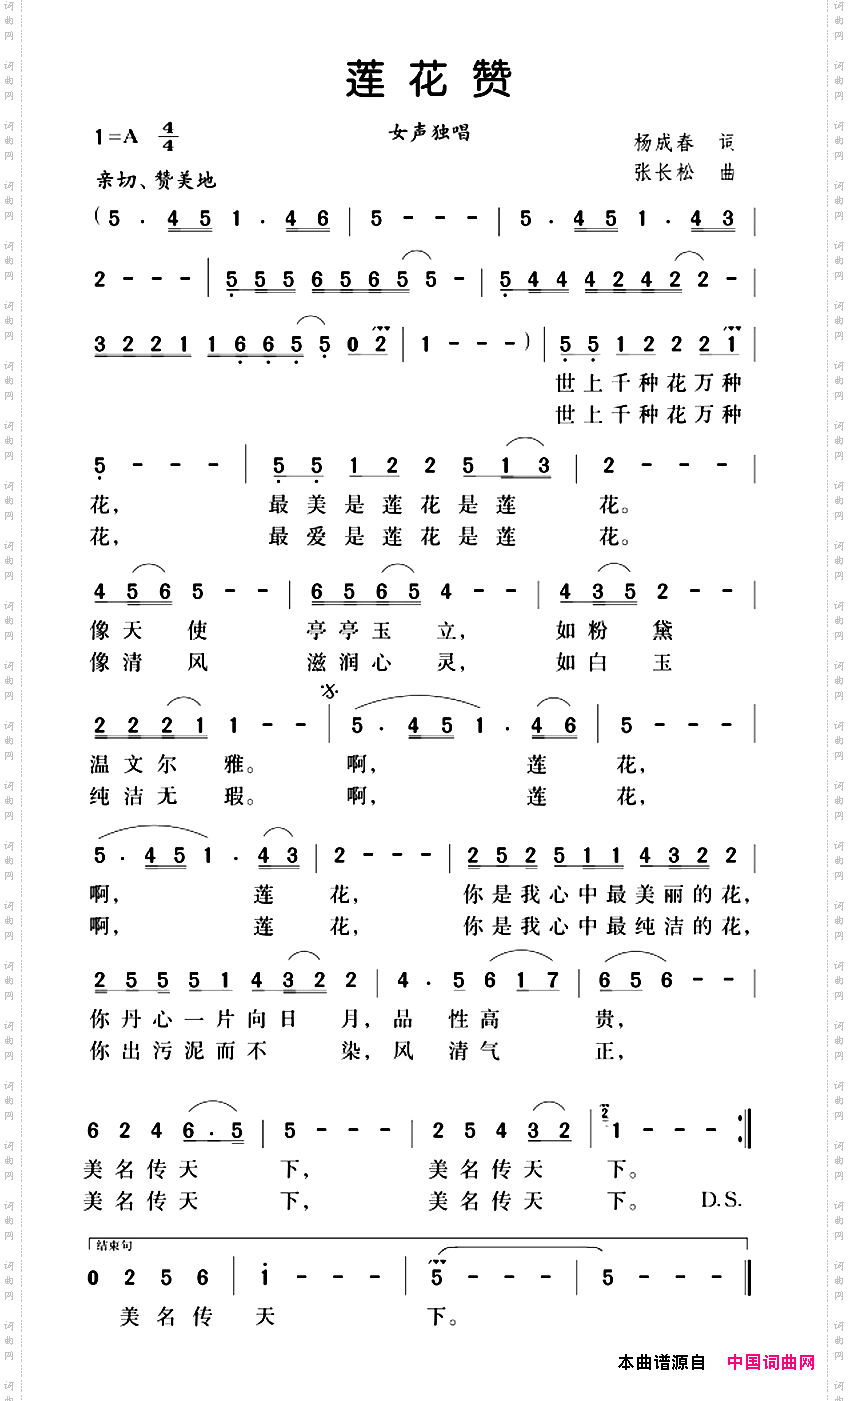 莲花赞
1=A 4/4
女声独唱
杨成春 词
张长松 曲
亲切、赞美地
(5 . 4 5 1 . 4 6 | 5 - - - | 5 . 4 5 1 . 4 3 |
2 - - - | 5 5 5 6 5 6 5 5 - | 5 4 4 4 2 4 2 2 - |
3 2 2 1 1 6 6 5 5 0 2 | 1 - - - ) | 5 5 1 2 2 2 1 |
世上千种花万种
世上千种花万种
5 - - - | 5 5 1 2 2 5 1 3 | 2 - - - |
花, 最美是莲花是莲 花。
花, 最爱是莲花是莲 花。
4 5 6 5 - - | 6 5 6 5 4 - - | 4 3 5 2 - - |
像天使 亭亭玉立, 如粉黛
像清风 滋润心灵, 如白玉
2 2 2 1 1 - - | 5 . 4 5 1 . 4 6 | 5 - - - |
温文尔雅。 啊, 莲 花,
纯洁无瑕。 啊, 莲 花,
5 . 4 5 1 . 4 3 | 2 - - - | 2 5 2 5 1 1 4 3 2 2 |
啊, 莲 花, 你是我心中最美丽的花,
啊, 莲 花, 你是我心中最纯洁的花,
2 5 5 5 1 4 3 2 2 | 4 . 5 6 1 7 | 6 5 6 - - |
你丹心一片向日月, 品性高 贵,
你出污泥而不染, 风清气 正,
6 2 4 6 . 5 | 5 - - - | 2 5 4 3 2 | 2 1 - - - :|
美名传天 下, 美名传天 下。
美名传天 下, 美名传天 下。 D.S.
结束句
0 2 5 6 | 1 - - - | 5 - - - | 5 - - - |
美名传 天 下。
本曲谱源自 中国词曲网